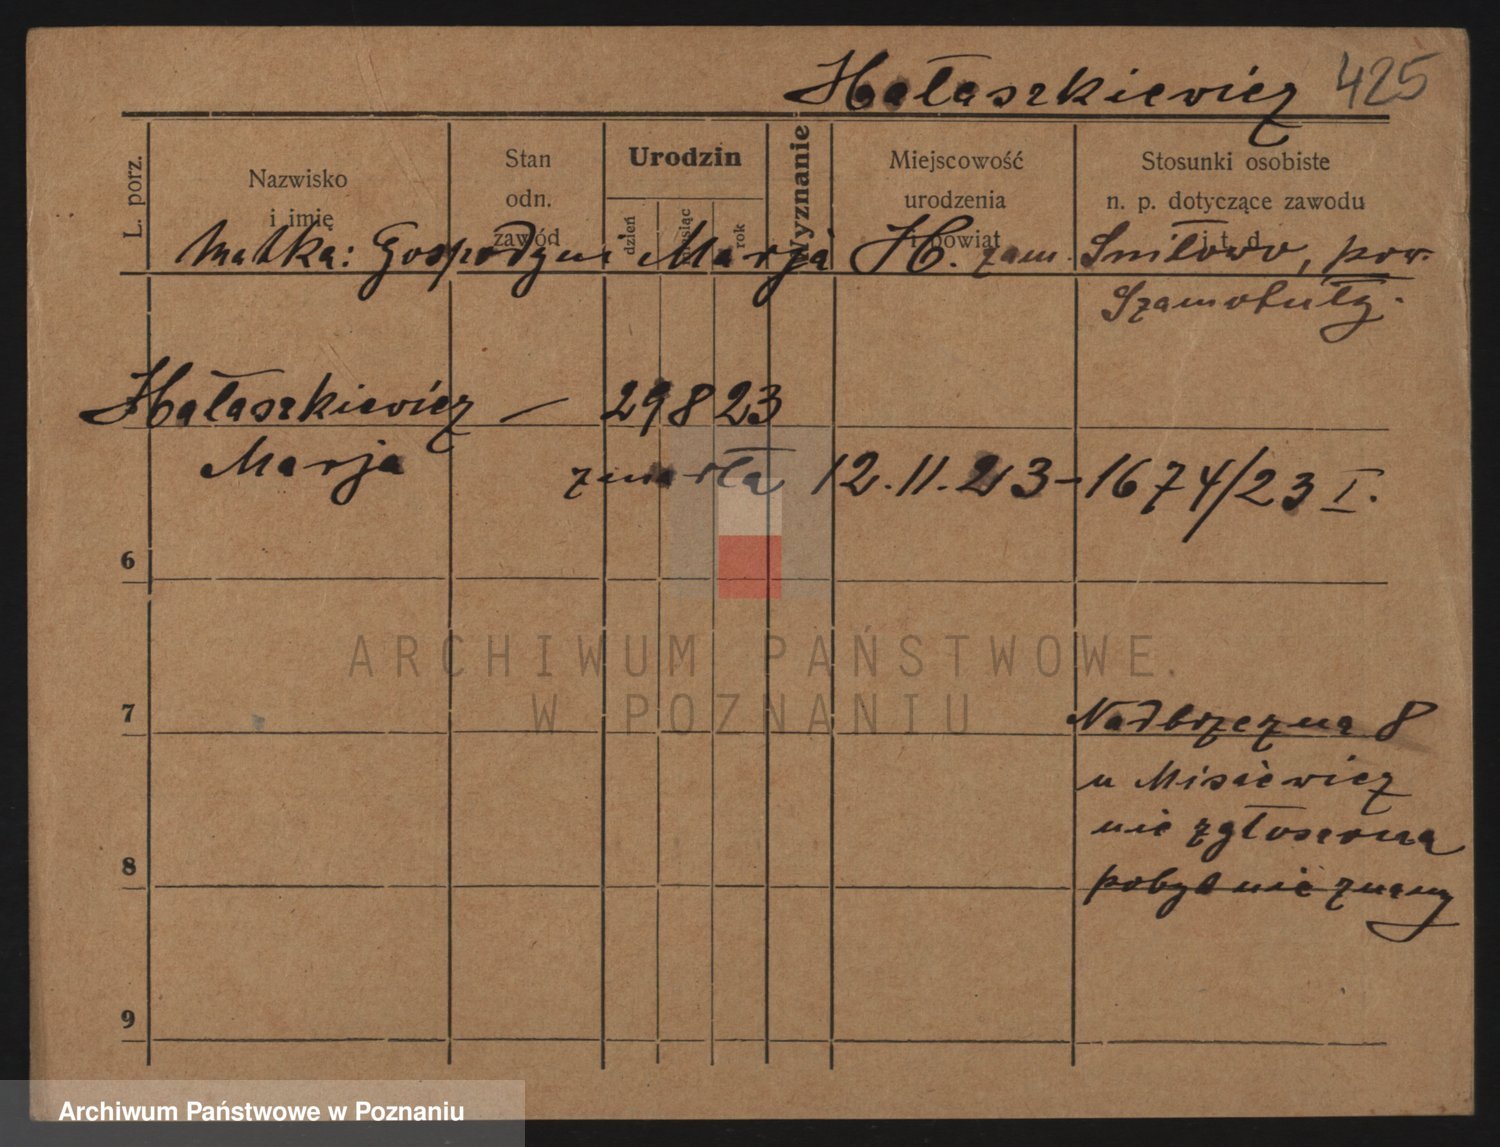 Hałaszkiewicz 425
L. porz.
Nazwisko
i imię
Stan
odn.
zawód
Urodzin
dzień
miesiąc
rok
Wyznanie
Miejscowość
urodzenia
i powiat
Stosunki osobiste
n. p. dotyczące zawodu
i t. d.
Matka: Gospodyni Marja H. zam. Śniłowo, pow.
Szamotuły.
Hałaszkiewicz — 29 8 23
Marja zmarła 12.11.23 - 1674/23 I.
6
7
Nadbrzeżna 8
u Misiewicz
nie zgłoszona
8
pobyt nie znany
9
ARCHIWUM PAŃSTWOWE
W POZNANIU
Archiwum Państwowe w Poznaniu